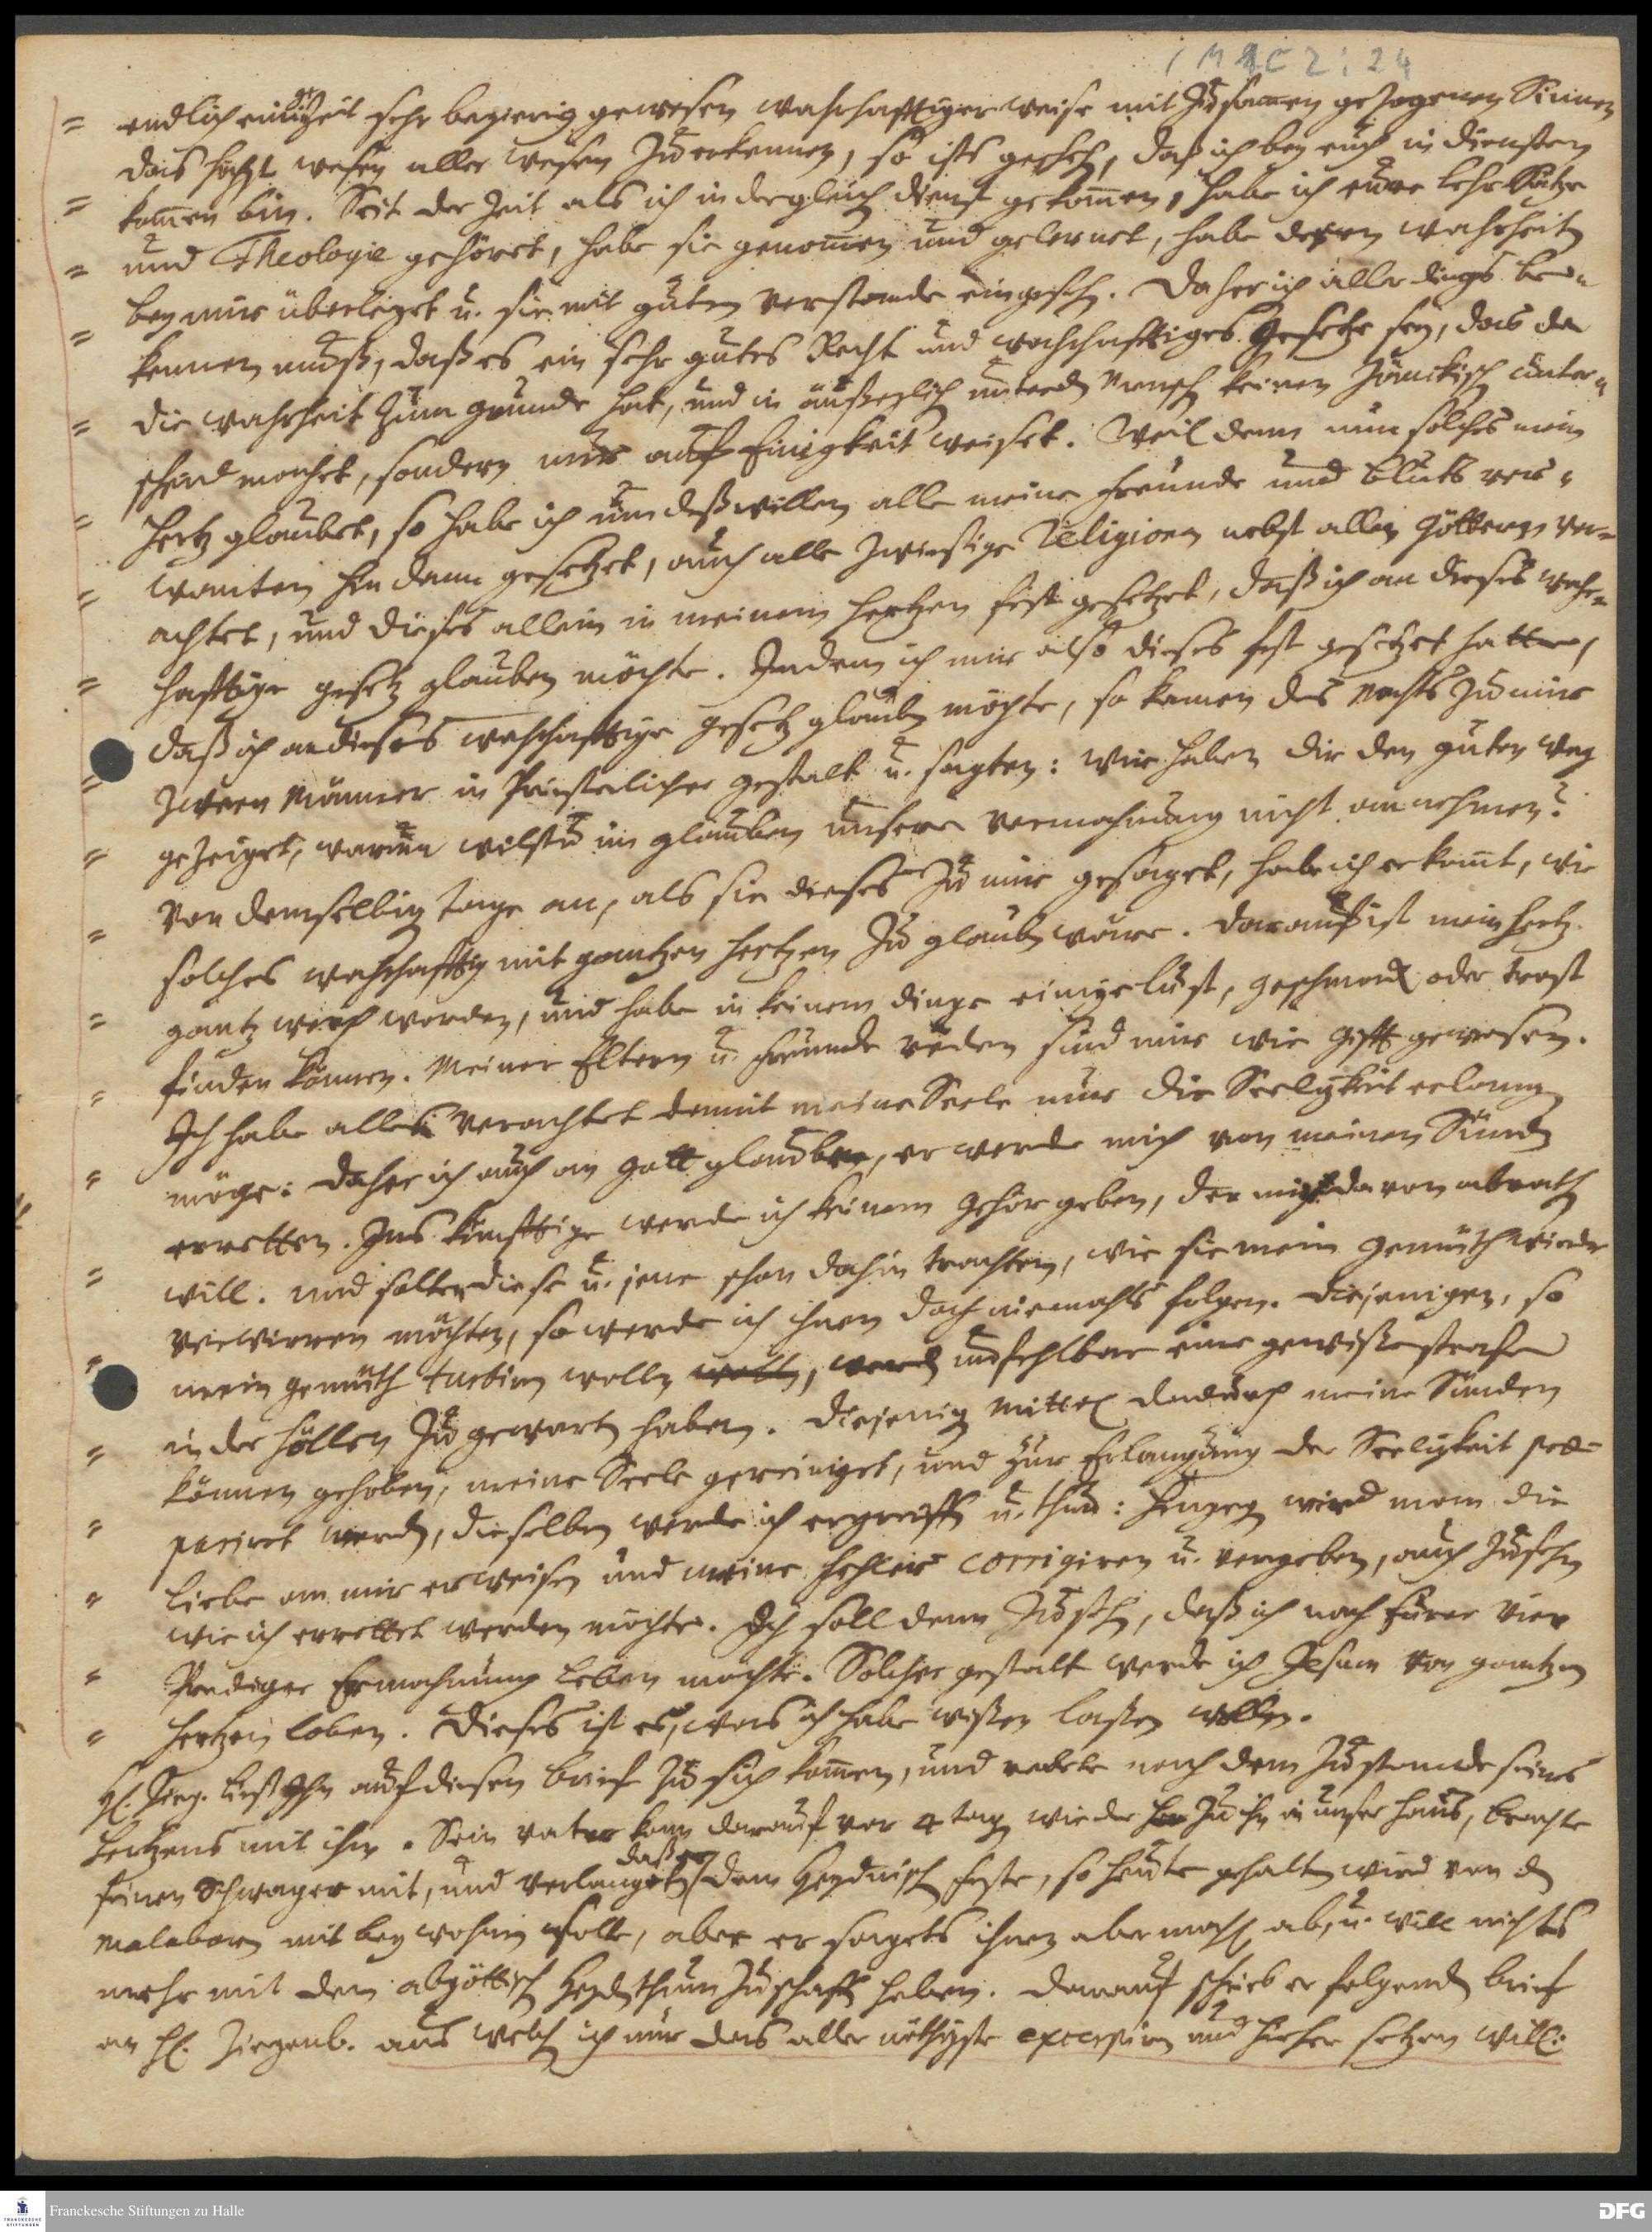 1 M 1 C 2 : 24
endlich einige Zeit sehr begierig gewesen wahrhafftiger weise mit zusamen gezogenen Sinnen
das höchst wesen aller wesen zu erkennen, so ists gescheh, daß ich bey euch in diensten
kom̄en bin. Seit der Zeit als ich in dergleich dienst gekom̄en, habe ich eure lehr Sätze
und Theologie gehöret, habe sie genom̄en und gelernet, habe deren wahrheit
bey mir überleget u. sie mit guten Verstande eingeseh. Daher ich aller dings be-
kennen muß, daß es ein sehr gutes Recht und wahrhafftiges Gesetze sey, das da
die wahrheit zum grunde hat, und in äußerlich unter d Mensch keinen Zänckisch unter-
scheid machet, sondern nur auf Einigkeit weiset. Weil denn nun solches mein
Hertz glaubet, so habe ich um deßwillen alle meine freunde und bluts ver-
wanten hindann gesetzet, auch alle zwistige Religionen nebst allen Göttern ver-
achtet, und dieses allein in meinem hertzen fest gesetzet, daß ich an dieses wahr-
hafftige gesetz glauben möchte. Indem ich mir also dieses fest gesetzet hatte,
daß ich an dieses wahrhafftige gesetz glaub möchte, so kamen des Nachts zu mir
zween Männer in Priesterlicher gestalt u. sagten: wir haben dir den guten weg
gezeiget, warum wilstu im glauben unsere Vermahnung nicht annehmen?
Von demselbig tage an, als sie dieses zu mir gesaget, habe ich erkañt, wie
solches wahrhafftig mit gantzen hertzen zu glaub wäre. Darauf ist mein hertz
gantz weich worden, und habe in keinem dinge einige lust, geschmack oder trost
finden können. Meiner Eltern u. freunde reden sind mir wie gifft gewesen.
Ich habe alles verachtet damit meine Seele nur die Seeligkeit erlang
möge: Daher ich auch an Gott glaube, er werde mich von meinen Sünd
erretten. Ins künfftige werde ich keinem Gehör geben, der mich davon abrath
will. und solten diese u. jene schon dahin trachten, wie sie mein Gemüth wieder
verwirren möchten, so werde ich ihnen doch niemahls folgen. Diejenigen, so
mein gemüth turbiren wolln, werd unfehlbar eine gewiße strafe
in der Höllen zu gewart haben. Diejenig Mittel dadurch meine Sünden
können gehoben, meine Seele gereiniget, und zur Erlangung der Seeligkeit præ-
pariret werd, dieselben werde ich ergreiff u. thun: hingeg wird man die
liebe an mir erweisen und meine fehler corrigiren u. vergeben, auch zusehn
wie ich errettet werden möchte. Ich soll denn zuseh, daß ich nach Eurer vier
Prediger Ermahnung leben möchte. Solcher gestalt werde ich Jesum von gantzen
Hertzen loben. Dieses ist es, was ich habe wißen laßen wollen.
H. Zieg. ließ Ihn auf diesen brief zu sich kom̄en, und redete nach dem Zustande seines
Hertzens mit ihm. Sein vater kam darauf vor 4 tag wieder zu ihm in unser Hauß, brachte
seinen Schwager mit, und verlangete, daß er dem Heydnisch feste, so heute gehalten wird von d
Malabaren mit bey wohnen solte, aber er sagets ihnen abermahl ab, u. will nichts
mehr mit dem abgöttisch Heydthum zu schaff haben. Darauf schrieb er folgend brief
an H. Ziegenb. aus welch ich nur das aller nöthigste excerpiren und hieher setzen will:
Franckesche Stiftungen zu Halle
DFG